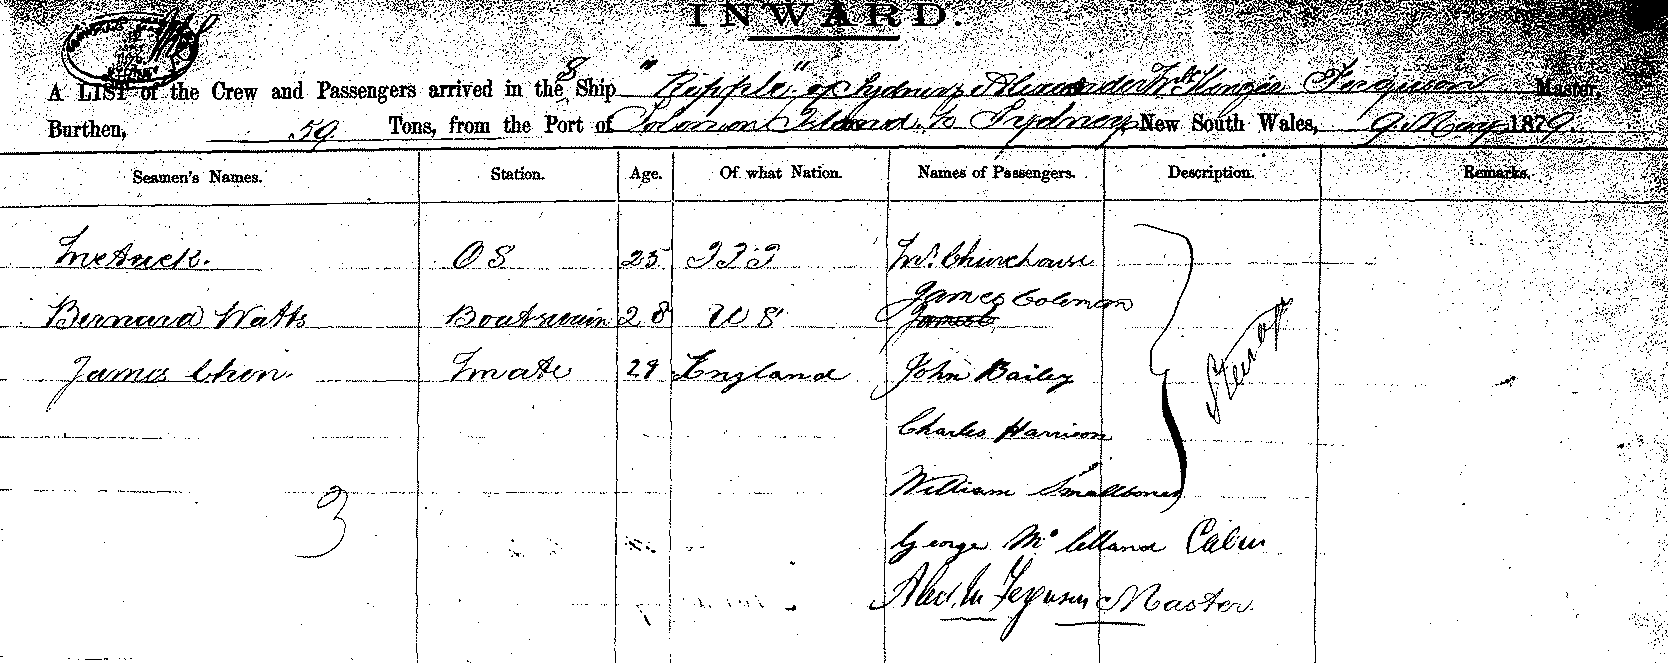 INWARD.
A LIST of the Crew and Passengers arrived in the S Ship "Ripple" of Sydney Alexander Ferguson Master,
Burthen, 59 Tons, from the Port of Solomon Island to Sydney New South Wales, 9 May 1879.
Seamen's Names. Station. Age. Of what Nation. Names of Passengers. Description. Remarks.
OS 25 Mr. Churchouse
James Coleman
Bernard Watts Boatswain 28 US
James Chon. Mate 29 England John Bailey
Charles Harrison
William Smallbones
Steerage
3
George Mc Clland Cabin
Ferguson Master